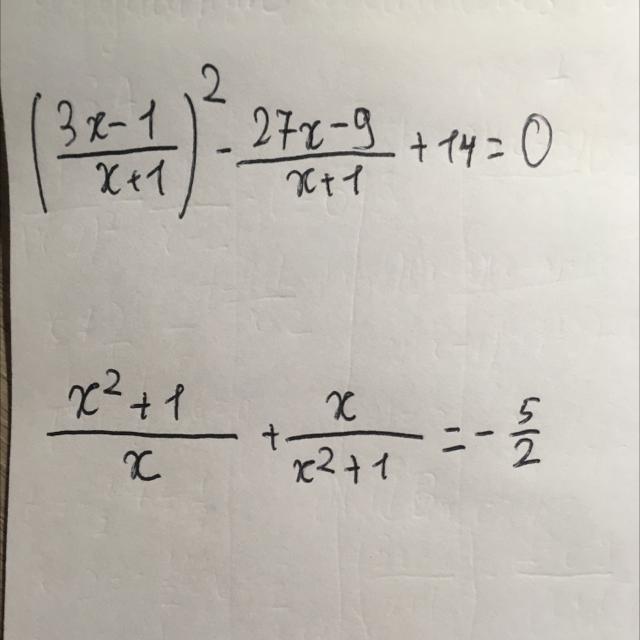 (3x-1/x+1)² - 27x-9/x+1 + 14 = 0
x²+1/x + x/x²+1 = - 5/2